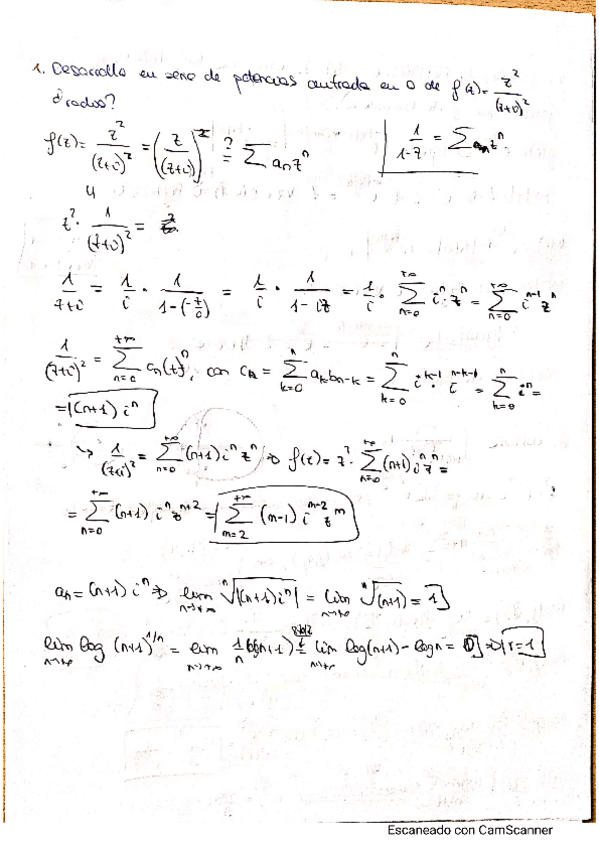 1. Desarrollo en serie de potencias centrada en 0 de f(z) = z²/(z+i)²
¿radios?
f(z) = z²/(z+i)² = (z/(z+i))² =? ∑ aₙzⁿ | 1/(1-z) = ∑ zⁿ
z² · 1/(z+i)² =
1/(z+i) = 1/i · 1/(1-(-z/i)) = 1/i · 1/(1-iz) = 1/i · ∑_{n=0}^{+∞} iⁿ·zⁿ = ∑_{n=0}^{+∞} i^{n-1} zⁿ
1/(z+i)² = ∑_{n=0}^{+∞} cₙ(z)ⁿ, con cₙ = ∑_{k=0}^{n} aₖbₙ₋ₖ = ∑_{k=0}^{n} i^{k-1} · i^{n-k-1} = ∑_{k=0}^{n} iⁿ =
= (n+1) iⁿ
↳ 1/(z+i)² = ∑_{n=0}^{+∞} (n+1) iⁿ zⁿ ⇒ f(z) = z² · ∑_{n=0}^{+∞} (n+1) iⁿ zⁿ =
= ∑_{n=0}^{+∞} (n+1) iⁿ z^{n+2} = ∑_{m=2}^{+∞} (m-1) i^{m-2} z^m
aₙ = (n+1) iⁿ ⇒ lim_{n→+∞} ⁿ√|(n+1) iⁿ| = lim_{n→+∞} ⁿ√(n+1) = 1
lim_{n→+∞} log (n+1)^{1/n} = lim_{n→+∞} 1/n log(n+1) = lim_{n→+∞} log(n+1) - log n = 0 ⇒ r=1
Escaneado con CamScanner